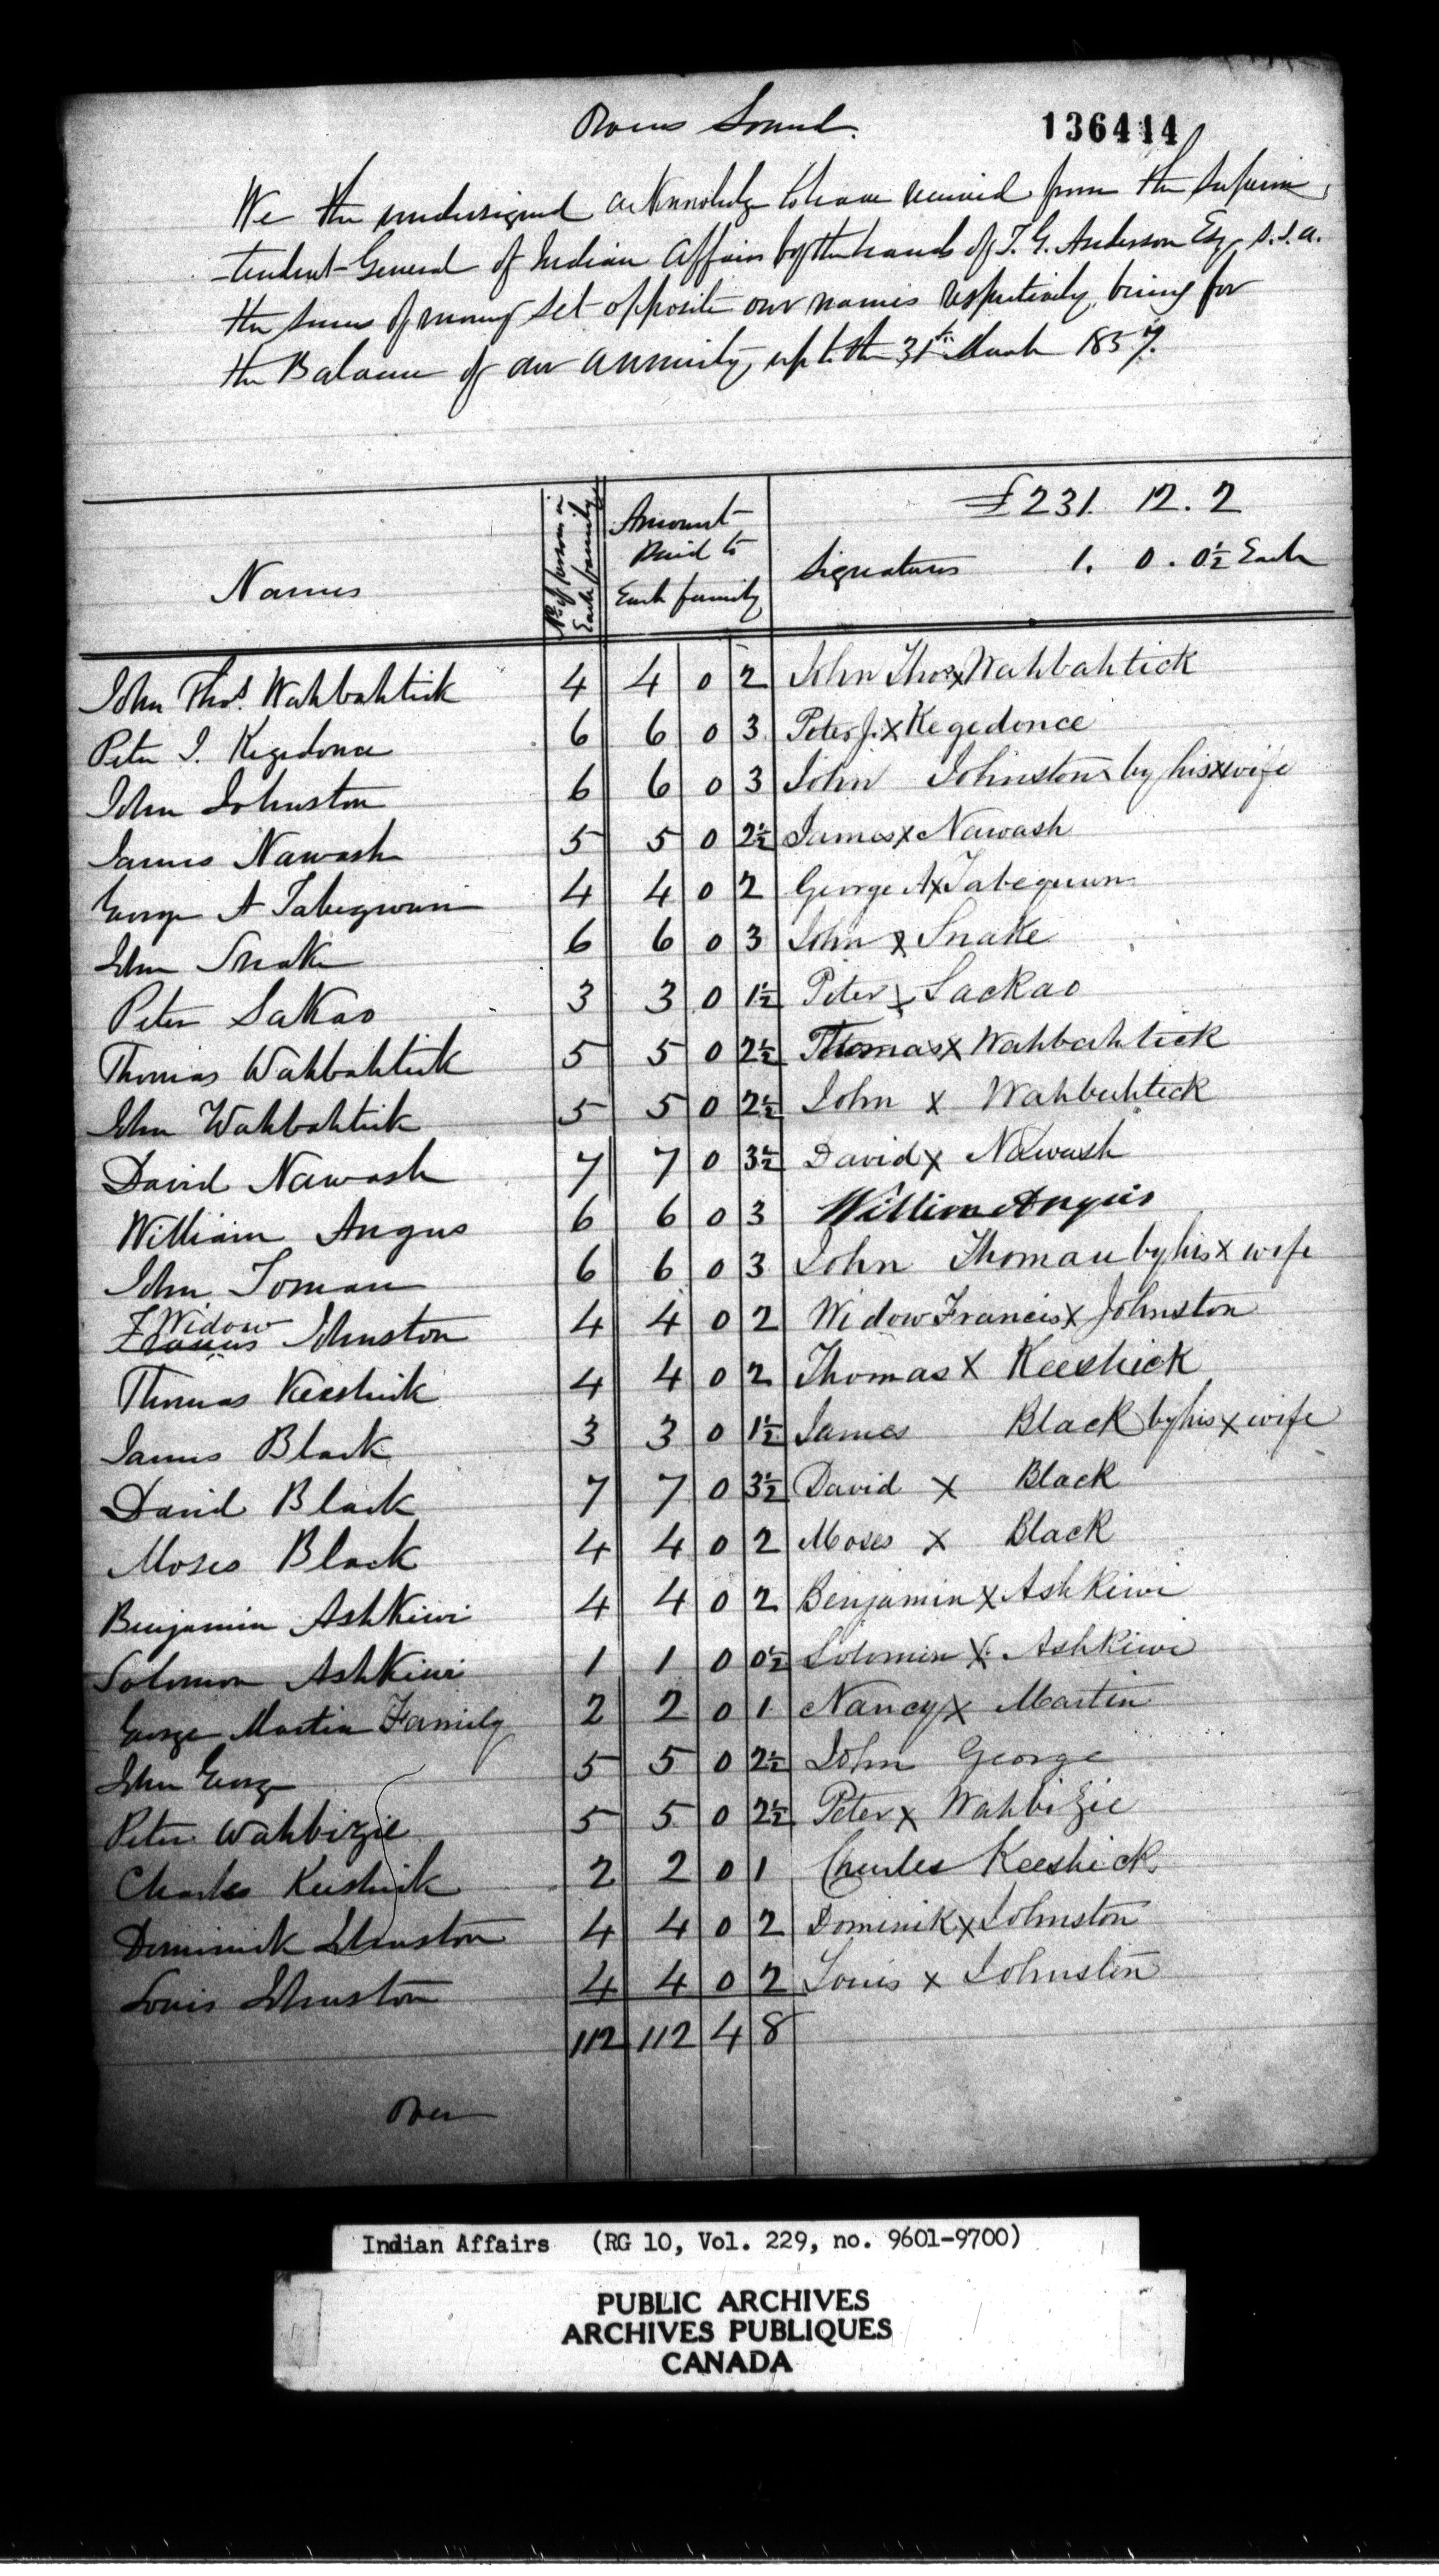 Owens Sound.
136414
We the undersigned acknowledge to have received from the Superin
-tendent-General of Indian Affairs by the hands of T. G. Anderson Esqr S.I.A.
the sums of money set opposite our names respectively, being for
the Balance of our annuity up to the 31st March 1857.
£231. 12. 2
Names No. of persons in Each family Amount Paid to Each family Signatures 1. 0. 0½ Each
John Thos. Wahbahtick 4 4 0 2 John Thos x Wahbahtick
Peter J. Kegedonce 6 6 0 3 Peter J. x Kegedonce
John Johnston 6 6 0 3 John Johnston by his x wife
James Nawash 5 5 0 2½ James x Nawash
George A Tabegwun 4 4 0 2 George A x Tabequun
John Snake 6 6 0 3 John x Snake
Peter Sakao 3 3 0 1½ Peter x Sackao
Thomas Wahbahtick 5 5 0 2½ Thomas x Wahbahtick
John Wahbahtick 5 5 0 2½ John x Wahbahtick
David Nawash 7 7 0 3½ David x Nawash
William Angus 6 6 0 3 William Angus
John Tomau 6 6 0 3 John Thomau by his x wife
Widow
Francis Johnston 4 4 0 2 Widow Francis x Johnston
Thomas Keeshick 4 4 0 2 Thomas x Keeshick
James Black 3 3 0 1½ James Black by his x wife
David Black 7 7 0 3½ David x Black
Moses Black 4 4 0 2 Moses x Black
Benjamin Ashkiwi 4 4 0 2 Benjamin x Ashkiwi
Solomon Ashkiwi 1 1 0 0½ Solomon x Ashkiwi
George Martin Family 2 2 0 1 Nancy x Martin
John George 5 5 0 2½ John George
Peter Wahbizie 5 5 0 2½ Peter x Wahbizie
Charles Keeshick 2 2 0 1 Charles Keeshick
Dominick Johnston 4 4 0 2 Dominik x Johnston
Louis Johnston 4 4 0 2 Louis x Johnston
112 112 4 8
Over
Indian Affairs (RG 10, Vol. 229, no. 9601-9700)
PUBLIC ARCHIVES
ARCHIVES PUBLIQUES
CANADA